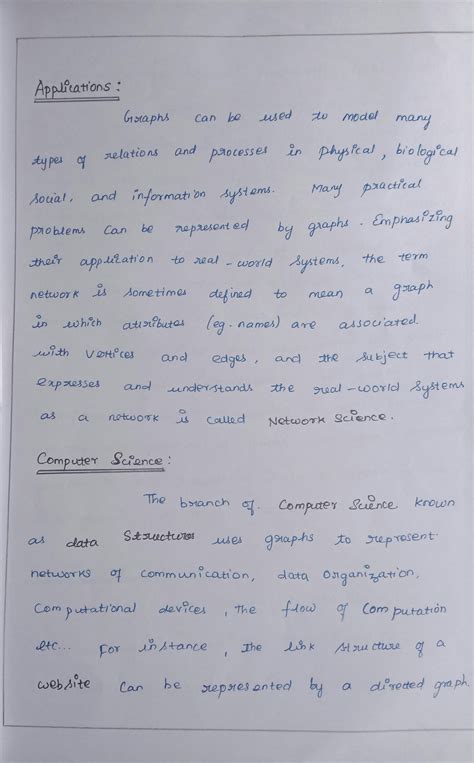 Applications :
Graphs can be used to model many
types of relations and processes in physical, biological
social, and information systems. Many practical
problems can be represented by graphs. Emphasizing
their application to real-world systems, the term
network is sometimes defined to mean a graph
in which attributes (eg. names) are associated
with Vertices and edges, and the subject that
expresses and understands the real-world systems
as a network is called Network Science.
Computer Science :
The branch of Computer Science known
as data Structures uses graphs to represent
networks of communication, data organization,
Computational devices, the flow of Computation
etc... For instance, The link structure of a
website can be represented by a directed graph.